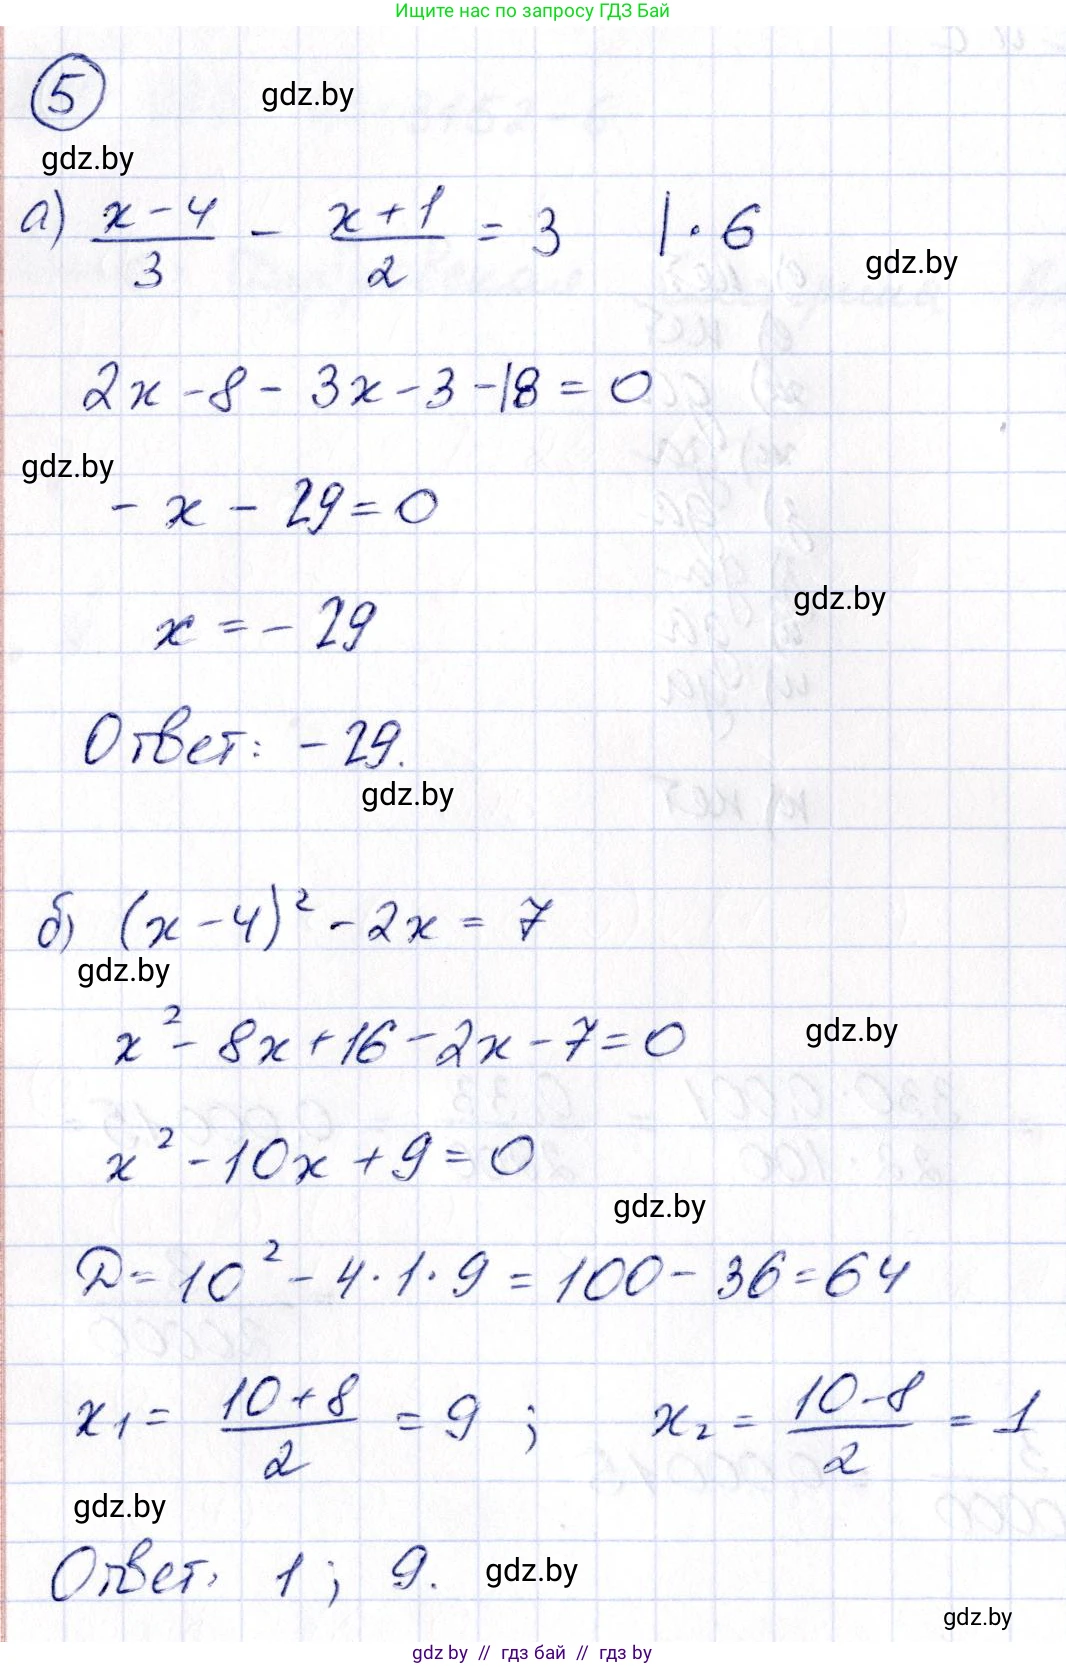 Ищите нас по запросу ГДЗ Бай
5
gdz.by
gdz.by
а) (x-4)/3 - (x+1)/2 = 3 | · 6
gdz.by
2x - 8 - 3x - 3 - 18 = 0
gdz.by
- x - 29 = 0
gdz.by
x = - 29
Ответ: - 29.
gdz.by
б) (x - 4)² - 2x = 7
gdz.by
x² - 8x + 16 - 2x - 7 = 0
gdz.by
x² - 10x + 9 = 0
gdz.by
D = 10² - 4 · 1 · 9 = 100 - 36 = 64
x₁ = (10+8)/2 = 9 ; x₂ = (10-8)/2 = 1
gdz.by
Ответ: 1 ; 9.
gdz.by
gdz.by
gdz by // гдз бай // гдз by